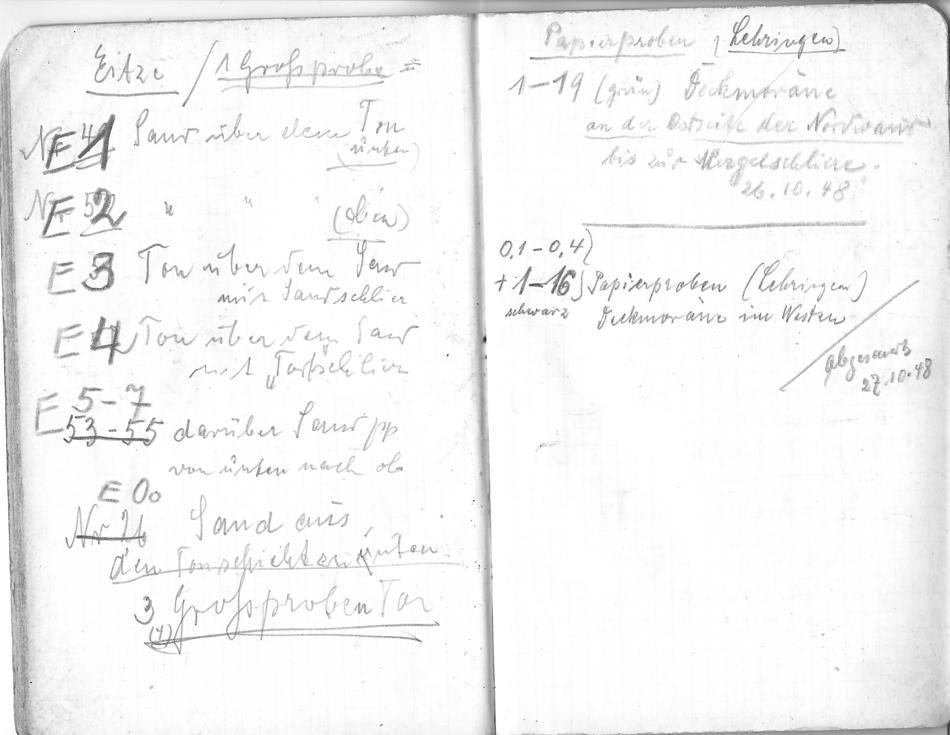 Eitze / 1 Grossprobe =
E 1 Sand über dem Ton
(unten)
E 2 " " " (oben)
E 3 Ton über dem Sand
mit Sandschlier
E 4 Ton über dem Sand
mit
E 5-7
53-55 darüber Sand pp
von unten nach ob
E 00
Nr 26 Sand aus
den Tonschichten unten
3 Grossproben Ton
Papierproben (Lehringen)
1-19 (grün) Deckmoräne
an der Ostseite der Nordwand
bis zur Mergelschliere.
26.10.48
0,1-0,4)
+ 1-16) Papierproben (Lehringen)
schwarz Deckmoräne im Westen
abgesandt
27.10.48